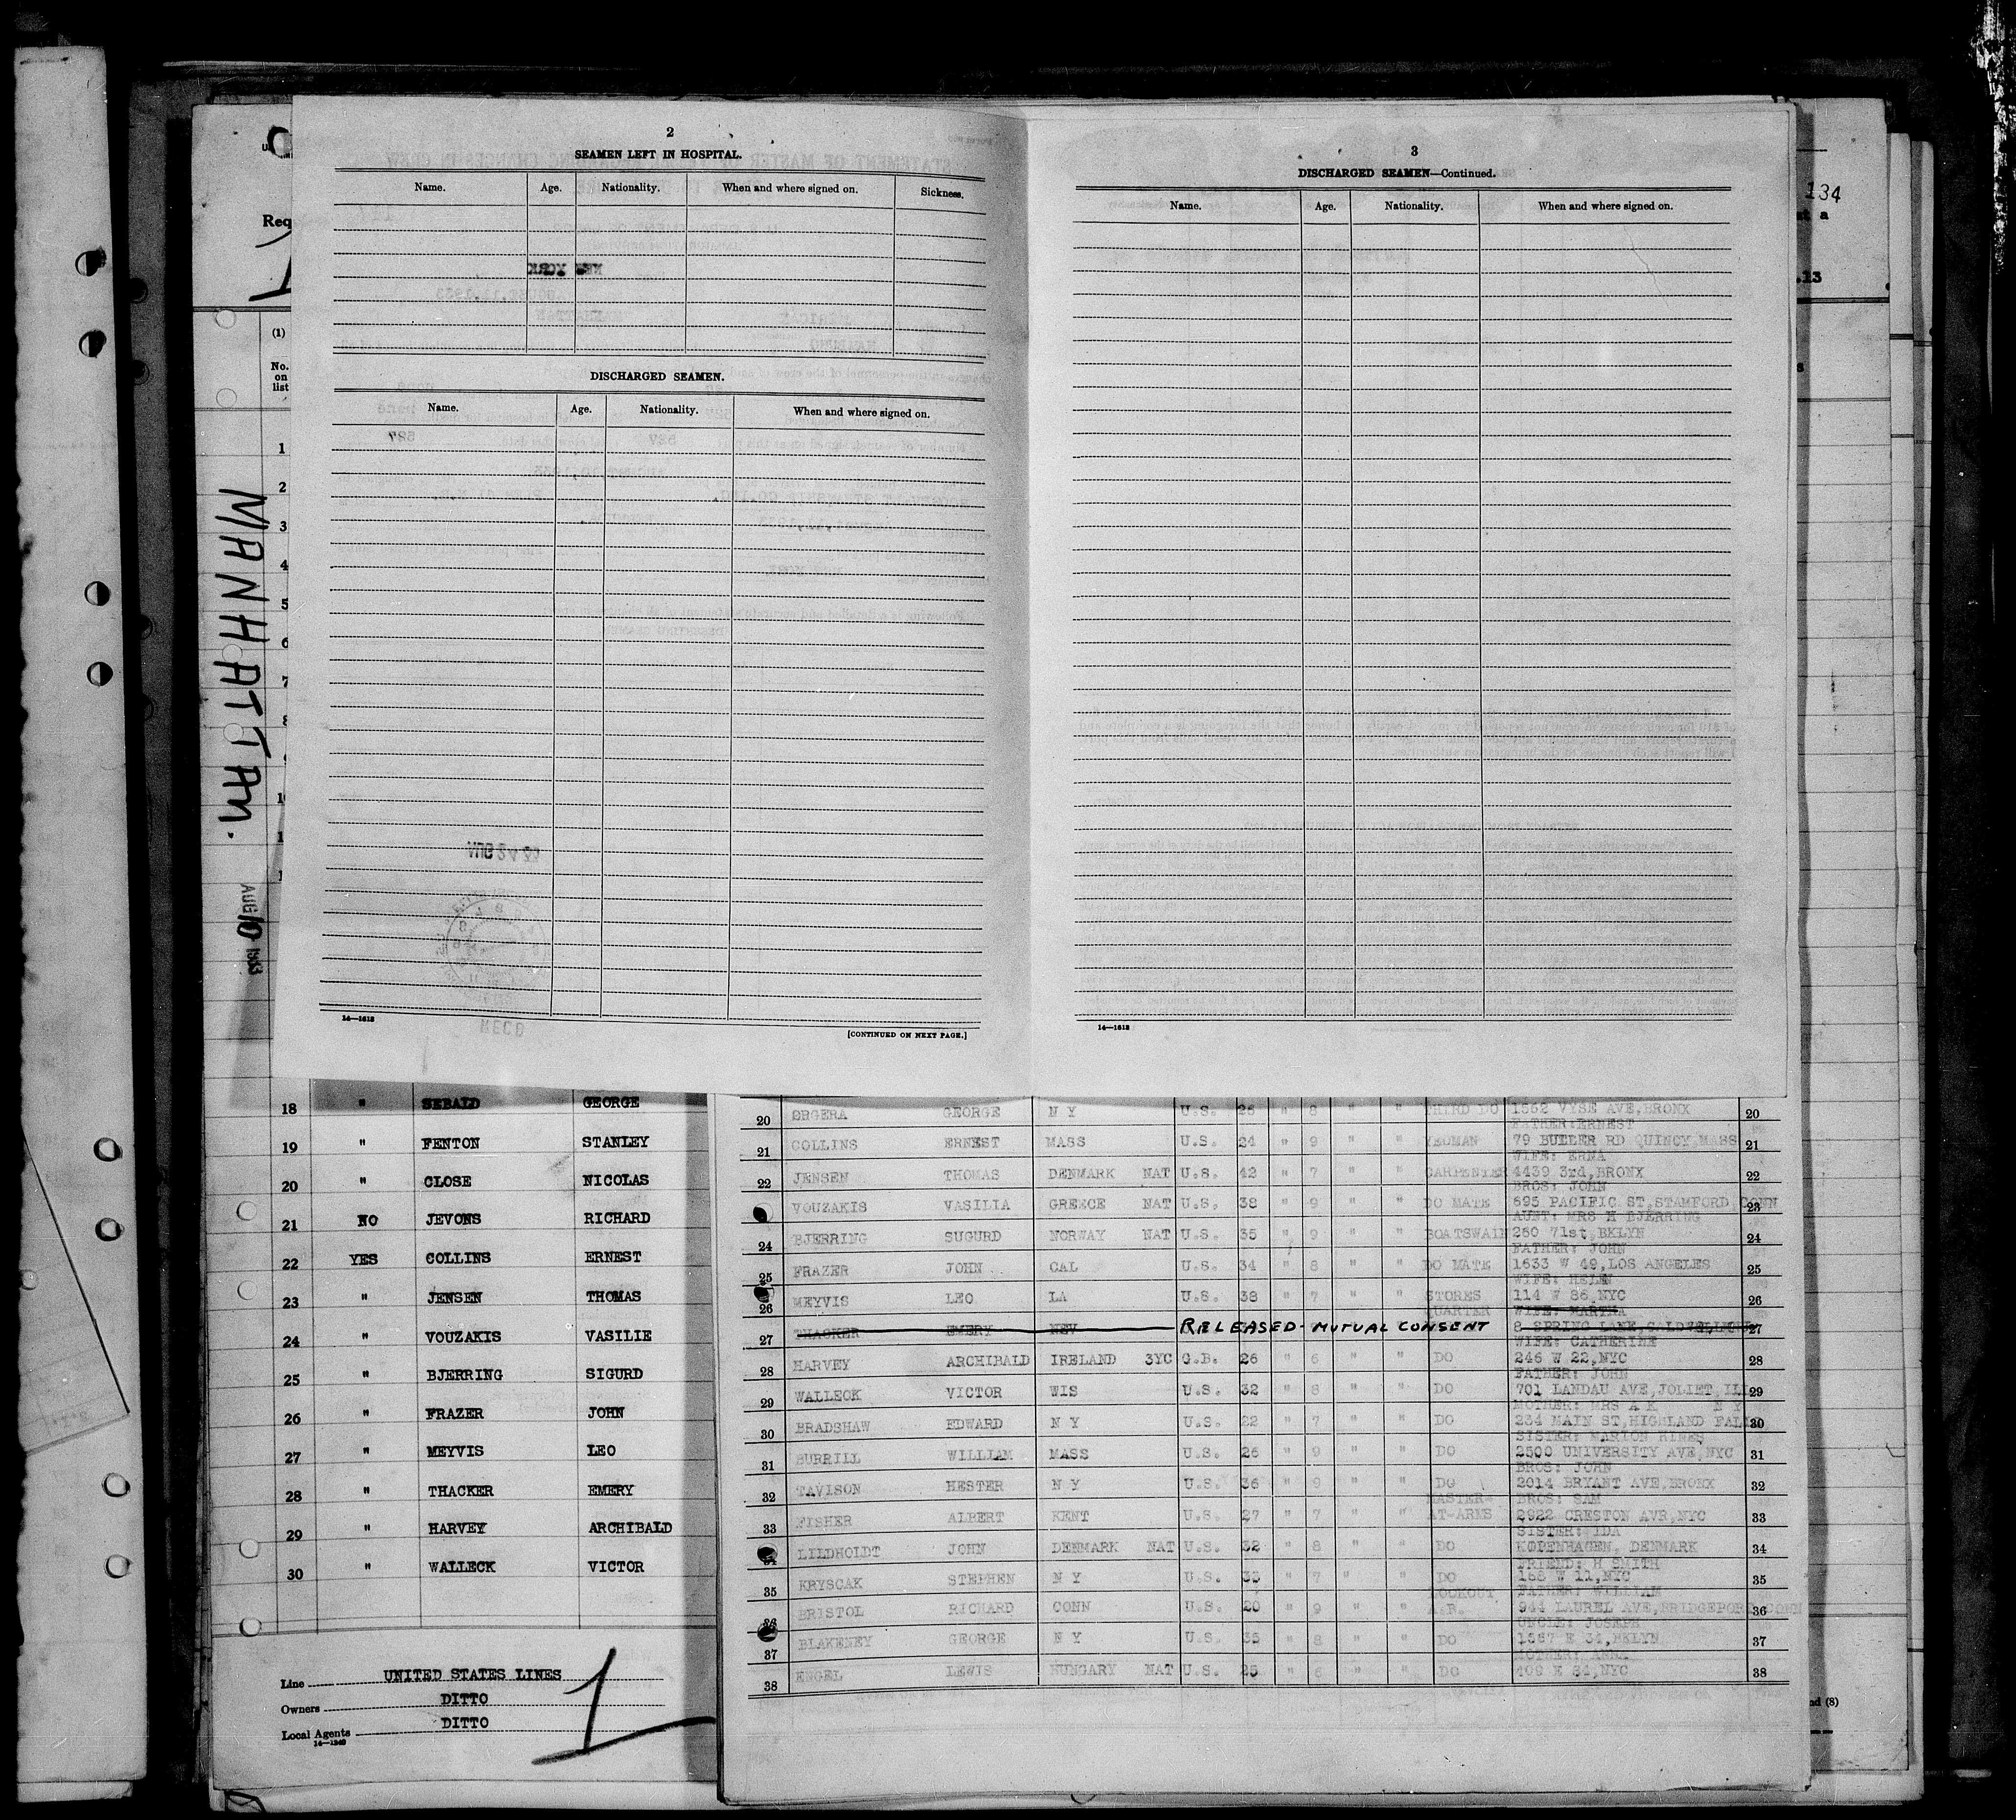 2
SEAMEN LEFT IN HOSPITAL.
Name. Age. Nationality. When and where signed on. Sickness.
DISCHARGED SEAMEN.
Name. Age. Nationality. When and where signed on.
14—1618
[CONTINUED ON NEXT PAGE.]
3
DISCHARGED SEAMEN—Continued.
Name. Age. Nationality. When and where signed on.
14—1618
134
at a
.13
Req
(1)
No. on list
1
2
3
4
5
6
7
8
MANHATTAN.
AUG 10 1933
18 " SEBALD GEORGE
19 " FENTON STANLEY
20 " CLOSE NICOLAS
21 NO JEVONS RICHARD
22 YES COLLINS ERNEST
23 " JENSEN THOMAS
24 " VOUZAKIS VASILIE
25 " BJERRING SIGURD
26 " FRAZER JOHN
27 " MEYVIS LEO
28 " THACKER EMERY
29 " HARVEY ARCHIBALD
30 " WALLECK VICTOR
Line UNITED STATES LINES
Owners DITTO
Local Agents DITTO
14—1240
1
20 ORGERA GEORGE N Y U.S. 26 " 8 " " THIRD DO 1562 VYSE AVE,BRONX 20
FATHER:ERNEST
21 COLLINS ERNEST MASS U.S. 24 " 9 " " YEOMAN 79 BUTLER RD QUINCY,MASS 21
WIFE: ERNA
22 JENSEN THOMAS DENMARK NAT U.S. 42 " 7 " " CARPENTER 4439 3rd,BRONX 22
BROS: JOHN
VOUZAKIS VASILIA GREECE NAT U.S. 38 " 9 " " DO MATE 695 PACIFIC ST,STAMFORD,CONN 23
AUNT: MRS H BJERRING
24 BJERRING SUGURD NORWAY NAT U.S. 35 " 9 " " BOATSWAIN 260 71st,BKLYN 24
FATHER: JOHN
25 FRAZER JOHN CAL U.S. 34 " 8 " " DO MATE 1633 W 49,LOS ANGELES 25
WIFE: HELEN
26 MEYVIS LEO LA U.S. 38 " 7 " " STORES 114 W 86,NYC 26
QUARTER WIFE: MARTHA
27 THACKER EMERY NEV RELEASED- MUTUAL CONSENT 8 SPRING LANE,CALDWELL 27
WIFE: CATHERINE
28 HARVEY ARCHIBALD IRELAND 3YC G.B. 26 " 6 " " DO 246 W 22,NYC 28
FATHER: JOHN
29 WALLECK VICTOR WIS U.S. 32 " 8 " " DO 701 LANDAU AVE,JOLIET,ILL 29
MOTHER: MRS A K N Y
30 BRADSHAW EDWARD N Y U.S. 22 " 7 " " DO 234 MAIN ST,HIGHLAND FALLS, 30
SISTER: MARION HINES
31 BURRILL WILLIAM MASS U.S. 26 " 9 " " DO 2500 UNIVERSITY AVE,NYC 31
BROS: JOHN
32 TAVISON HESTER N Y U.S. 36 " 9 " " DO 2014 BRYANT AVE,BRONX 32
MASTER- BROS: SAM
33 FISHER ALBERT KENT U.S. 27 " 7 " " AT-ARMS 2922 CRESTON AVR,NYC 33
SISTER: IDA
LILDHOLDT JOHN DENMARK NAT U.S. 32 " 8 " " DO KOPENHAGEN, DENMARK 34
FRIEND: H SMITH
35 KRYSCAK STEPHEN N Y U.S. 33 " 7 " " DO 168 W 11,NYC 35
LOOKOUT FATHER: WILLIAM
36 BRISTOL RICHARD CONN U.S. 20 " 9 " " A.B. 944 LAUREL AVE,BRIDGEPORT,CONN 36
UNCLE: JOSEPH
37 BLAKENEY GEORGE N Y U.S. 35 " 8 " " DO 1567 E 34,BKLYN 37
MOTHER: ANNA
38 ENGEL LEWIS HUNGARY NAT U.S. 25 " 6 " " DO 409 E 84,NYC 38
nd (8)